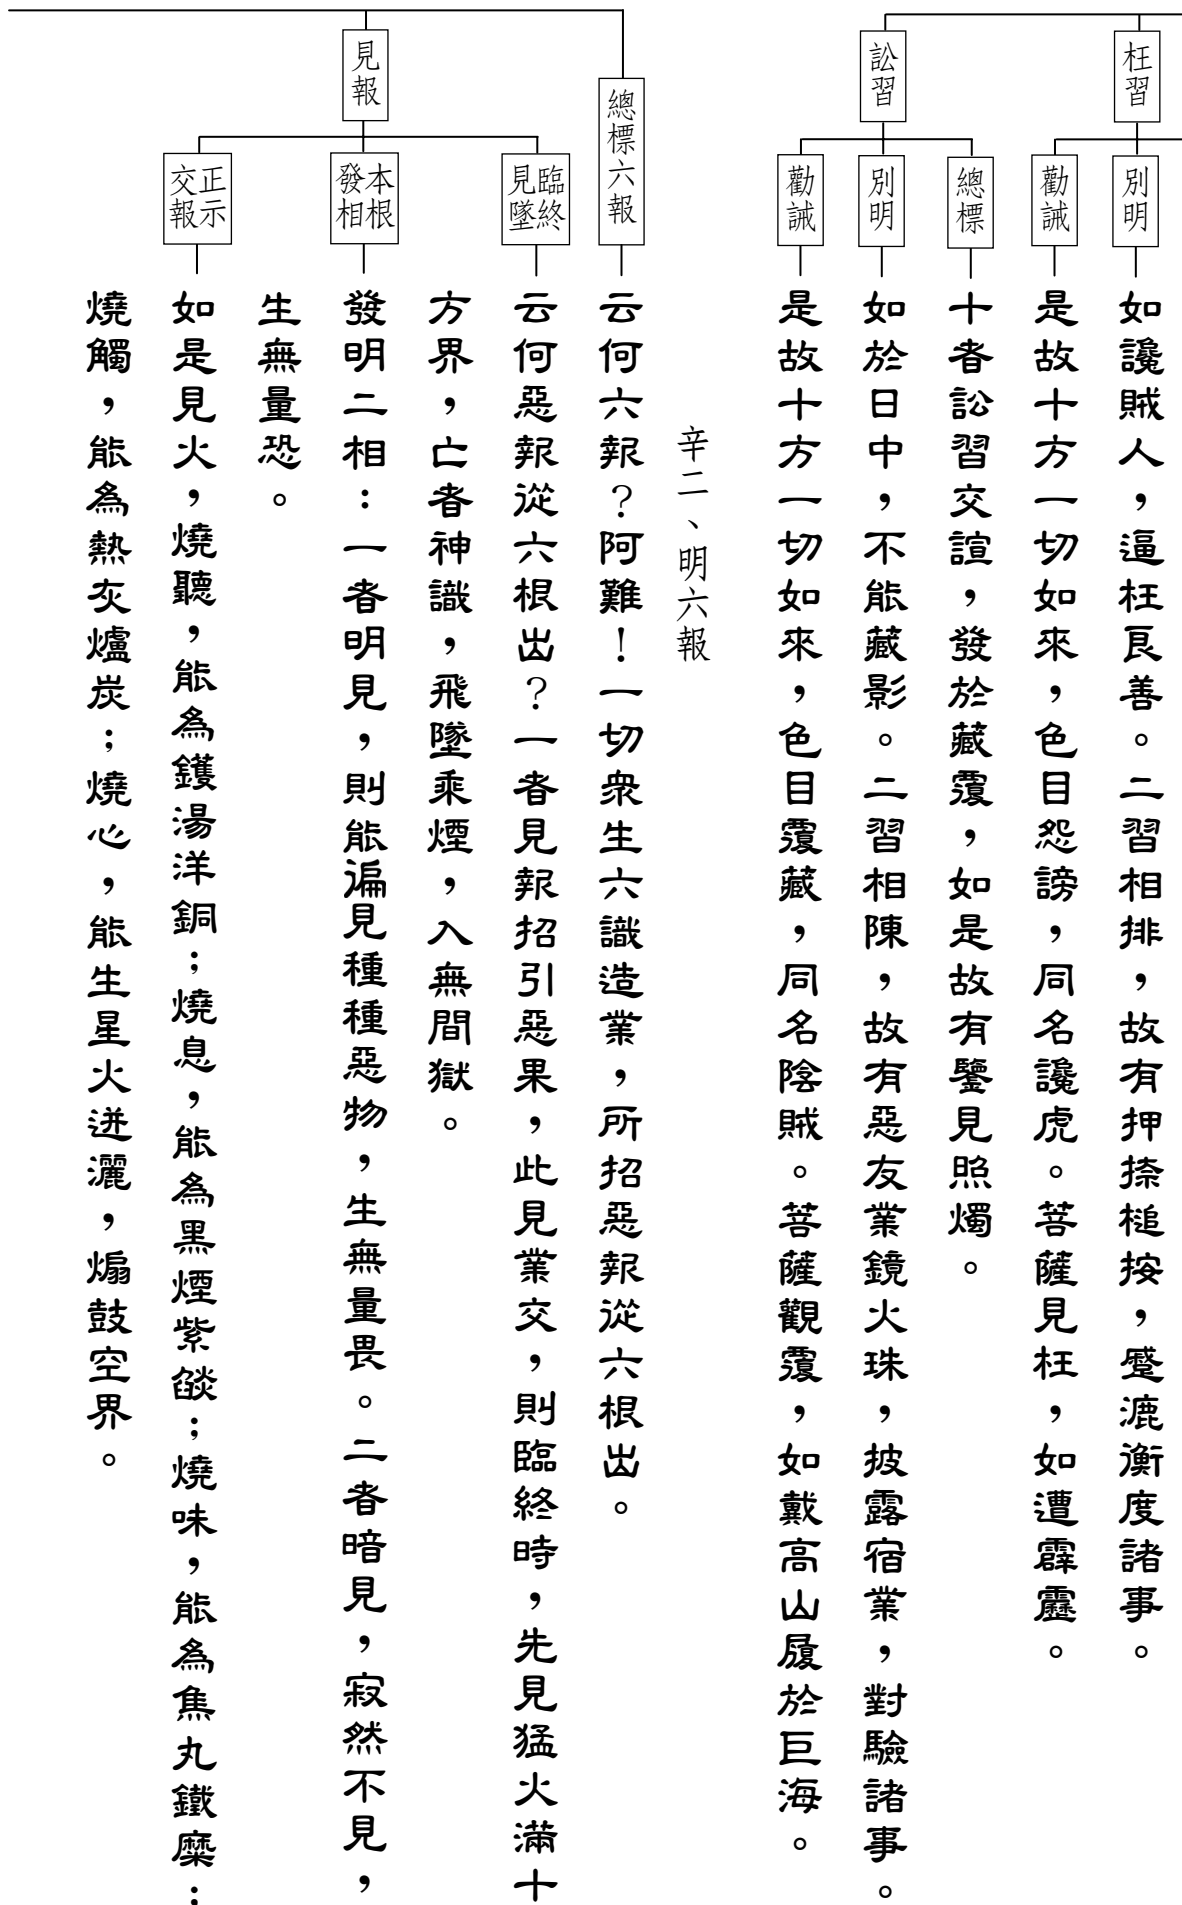 枉習
別明
如讒賊人，逼枉良善。二習相排，故有押捺槌按，蹙漉衡度諸事。
勸誡
是故十方一切如來，色目怨謗，同名讒虎。菩薩見枉，如遭霹靂。
訟習
總標
十者訟習交諠，發於藏覆，如是故有鑒見照燭。
別明
如於日中，不能藏影。二習相陳，故有惡友業鏡火珠，披露宿業，對驗諸事。
勸誡
是故十方一切如來，色目覆藏，同名陰賊。菩薩觀覆，如戴高山履於巨海。
辛二、明六報
總標六報
云何六報？阿難！一切眾生六識造業，所招惡報從六根出。
見報
臨終
見墜
云何惡報從六根出？一者見報招引惡果，此見業交，則臨終時，先見猛火滿十
方界，亡者神識，飛墜乘煙，入無間獄。
本根
發相
發明二相：一者明見，則能遍見種種惡物，生無量畏。二者暗見，寂然不見，
生無量恐。
正示
交報
如是見火，燒聽，能為鑊湯洋銅；燒息，能為黑煙紫燄；燒味，能為焦丸鐵糜；
燒觸，能為熱灰爐炭；燒心，能生星火迸灑，煽鼓空界。